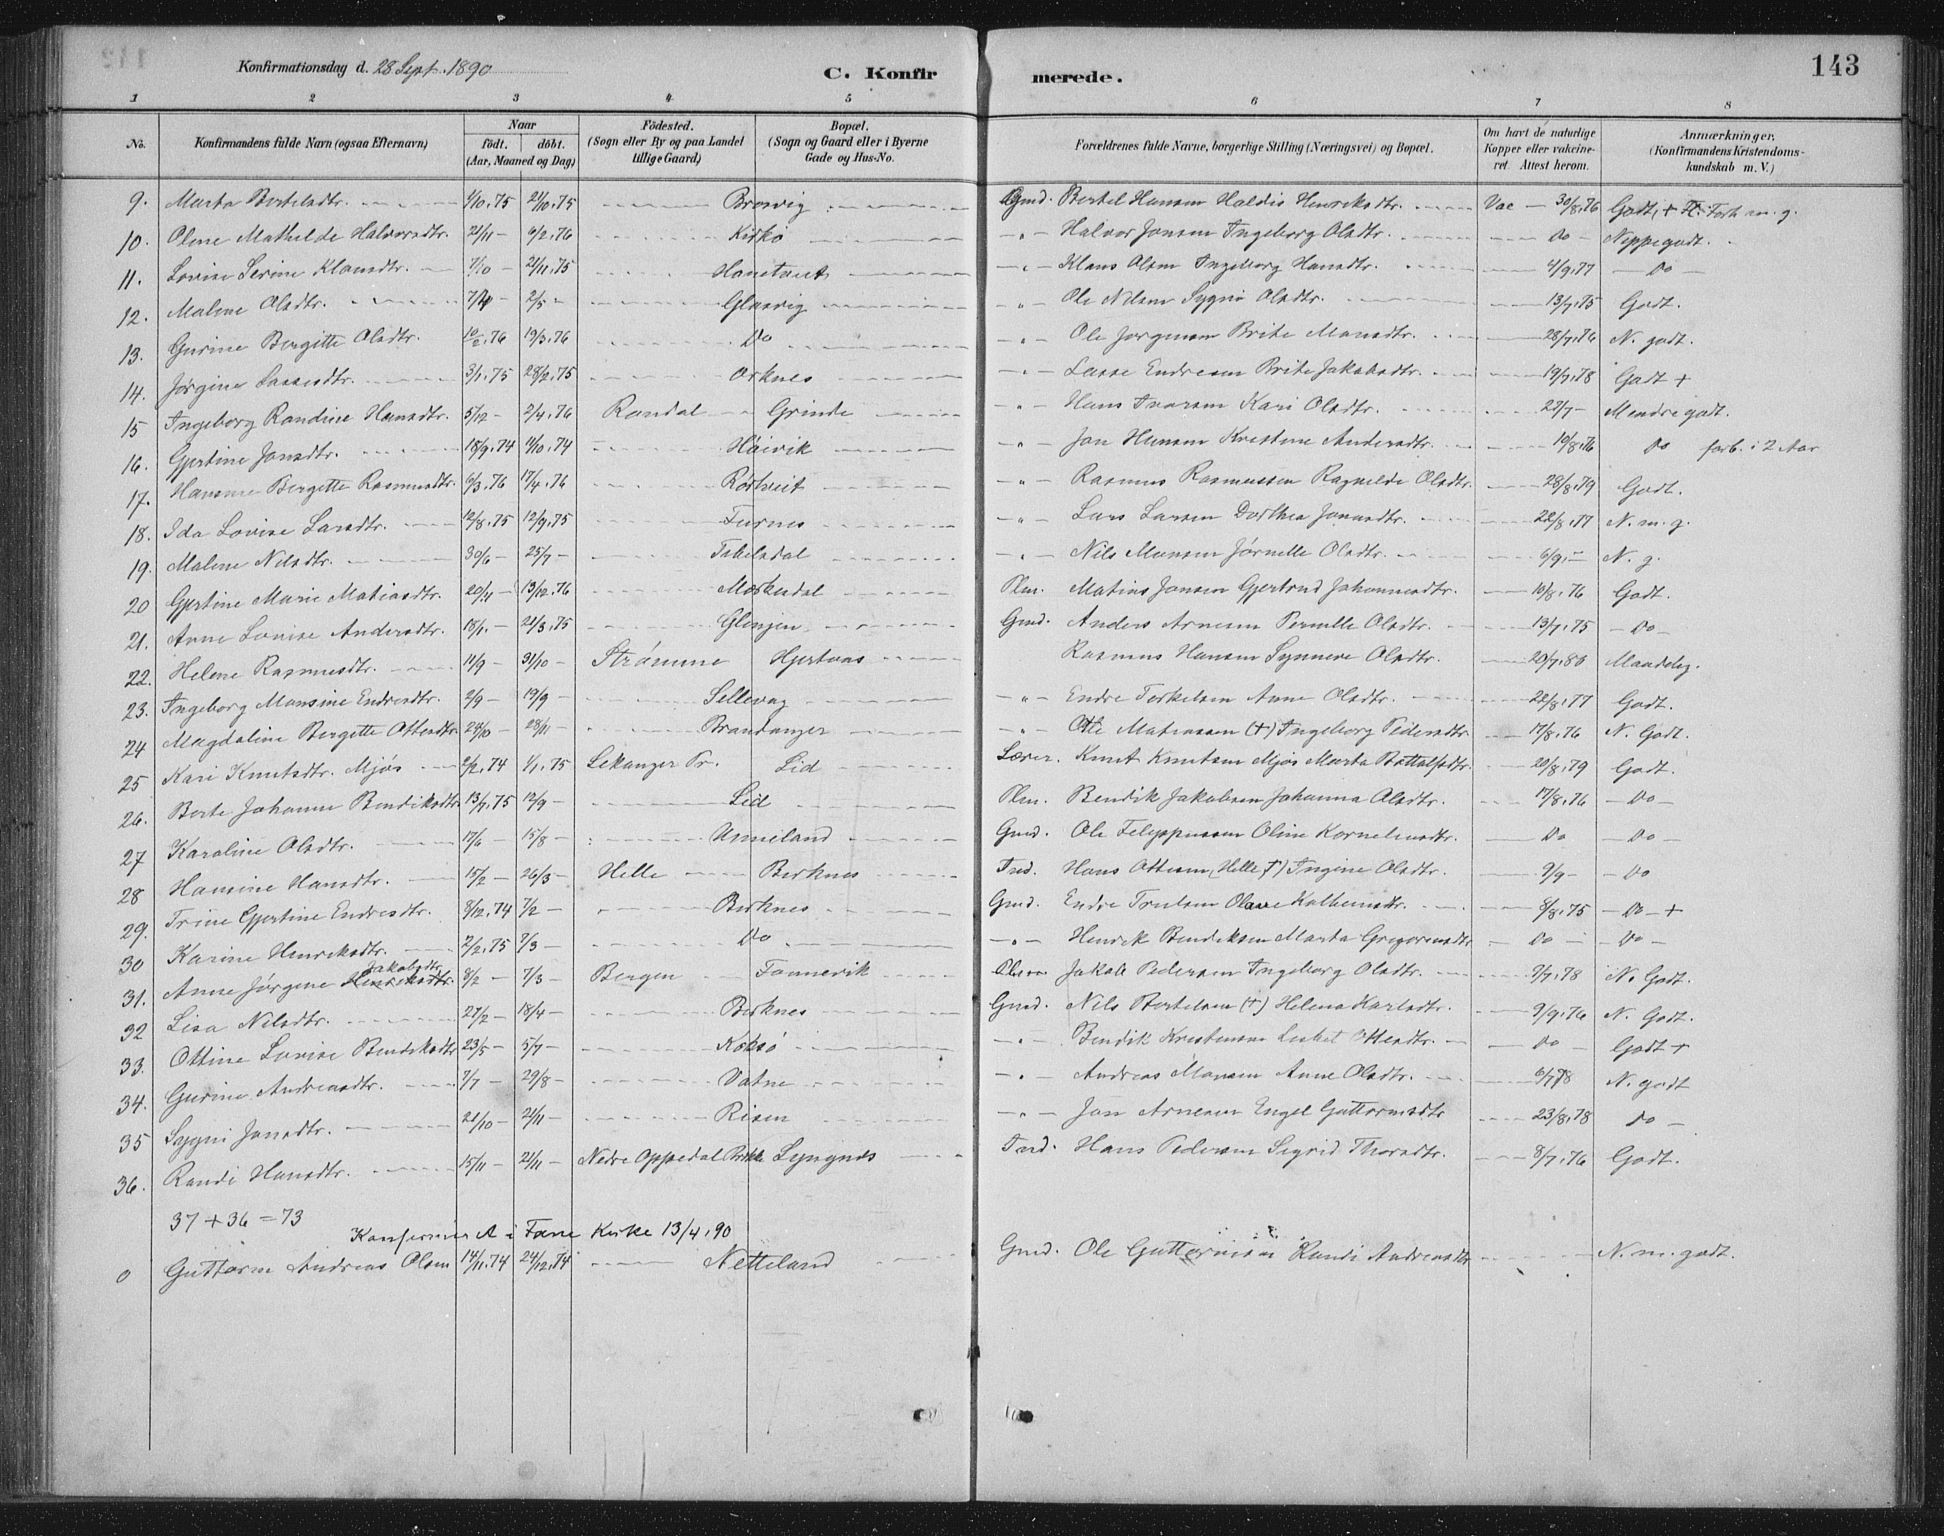 143
Konfirmationsdag d. 28 Sept. 1890
C. Konfirmerede.
1 2 3 4 5 6 7 8
No. Konfirmandens fulde Navn (ogsaa Efternavn) Naar födt. döbt. (Aar, Maaned og Dag) Födested. (Sogn eller By og paa Landet tillige Gaard) Bopæl. (Sogn og Gaard eller i Byerne Gade og Hus-No. Forældrenes fulde Navne, borgerlige Stilling (Næringsvei) og Bopæl. Om havt de naturlige Kopper eller vakcineret. Attest herom. Anmærkninger. (Konfirmandens Kristendomskundskab m. V.)
9. Marta Bertelsdtr. 1/10.75 21/10.75 Brosvig Gmd. Bertel Hansen Haldis Henriksdtr. Vac 30/8.76 Godt, + Fl. Forh m. g.
10. Oline Mathilde Halvorsdtr. 21/11 6/2.76 Kirkö " Halvor Jonsen Ingeborg Olsdtr. Do Neppe godt.
11. Lovise Serine Klausdtr. 7/10 21/11.75 " Klaus Olsen Ingeborg Hansdtr. 4/9.77 Do
12. Malene Olsdtr. 2/5 Glosvig " Ole Nilsen Sygni Olsdtr. 13/7.75 Godt.
13. Gurine Bergitte Olsdtr. 10/2.76 19/3.76 Do " Ole Jørgensen Brite Monsdtr. 28/7.76 N. godt.
14. Jørgine Lassesdtr. 3/1.75 28/2.75 Orknes " Lasse Endresen Brite Jakobsdtr. 19/7.78 Godt +
15 Ingeborg Randine Hansdtr. 5/12 2/4.76 Randal Grinde " Hans Ivarsen Kari Olsdtr. 27/7 Mindre godt.
16. Gjertine Jonsdtr. 18/9.74 11/10.74 Höivik " Jon Hansen Kristine Andersdtr. 19/8.76 Do forb. i 2 Aar
17. Hansine Bergitte Rasmusdtr. 6/3.76 17/4.76 Rörtveit " Rasmus Rasmussen Ragnilde Olsdtr. 28/8.79 Godt.
18. Ida Lovise Larsdtr. 12/8.75 12/9.75 Furnes " Lars Larsen Dorthea Jonasdtr. 22/8.77 N. m. g.
19. Malene Nilsdtr. 30/6 25/7 " Nils Monsen Jørnelle Olsdtr. 6/9. N. g.
20 Gjertine Marie Matiasdtr. 20/11 13/12.76 Morkedal Plm. Matias Jonsen Gjertrud Johannesdtr. 10/8.76 Godt.
21. Anne Lovise Andersdtr. 18/1. 21/3.75 Glenjen Gmd. Anders Arnesen Pernille Olsdtr. 13/7.75 Do
22. Helene Rasmusdtr. 11/9 31/10 Strømme Hjertaas Rasmus Hansen Synneve Olsdtr. 20/7.80 Maadelig.
23. Ingeborg Monsine Endresdtr. 2/9 19/9 Sellevag " Endre Torkelsen Anne Olsdtr. 22/8.77 Godt.
24 Magdaline Bergitte Ottesdtr. 24/10 28/11 Brandanger " Otte Matiassen (+) Ingeborg Pedersdtr. 17/8.76 N. Godt.
25 Kari Knutsdtr. Mjös 2/2.74 1/1.75 Lekanger Pr. Lid Lærer. Knut Knutsen Mjös Marta Bottolfsdtr. 20/8.79 Godt.
26. Berte Johanne Bendiksdtr. 13/7.75 12/9 Lid Plm. Bendik Jakobsen Johanna Olsdtr. 17/8.76 Do
27 Karoline Olsdtr. 17/6 15/8 Unneland Gmd. Ole Felippussen Oline Korneliusdtr. Do Do
28 Hansine Hansdtr. 15/2 26/3 Helle Birknes Ind. Hans Ottesen (Helle †) Ingine Olsdtr. 9/9 Do
29. Trine Gjertine Endresdtr. 8/12.74 7/2 " Birknes Gmd. Endre Trulsen Olave 8/8.75 Do +
30 Karine Henriksdtr. 2/2.75 7/3 Do " Henrik Bendiksen Marta Gregoriusdtr. Do Do
31. Anne Jørgine Jakobsdtr. 8/2 7/3 Bergen Tonnevik Jakob Pedersen Ingeborg Olsdtr. 9/7.78 N. Godt.
32 Lisa Nilsdtr. 27/2 18/4 Birknes Gmd. Nils Bertelsen (+) Helena Karlsdtr. 9/9.76 N. Godt.
33. Ottine Lovise Bendiksdtr 23/5 5/7 " Bendik Kristensen Lisbet Ottesdtr. Do Godt +
34. Gurine Andreasdtr. 7/7 29/8 Vatne " Andreas Monsen Anne Olsdtr. N. godt
35 Sygni Jonsdtr. 21/10 21/11 Risen " Jon Arnesen Engel Guttormsdtr 23/8.78 Do
36. Randi Hansdtr. 15/11 21/11 Nedre Oppedal Brekke Ind. Hans Pedersen Sigrid Thorsdtr. 8/7.76 Godt.
37 + 36 = 73
i Kirke 13/4.90
0 Guttorm Andreas Olsen 14/11.74 24/12.74 Netteland Gmd. Ole Guttormsen Randi Andreasdtr N. m. godt.